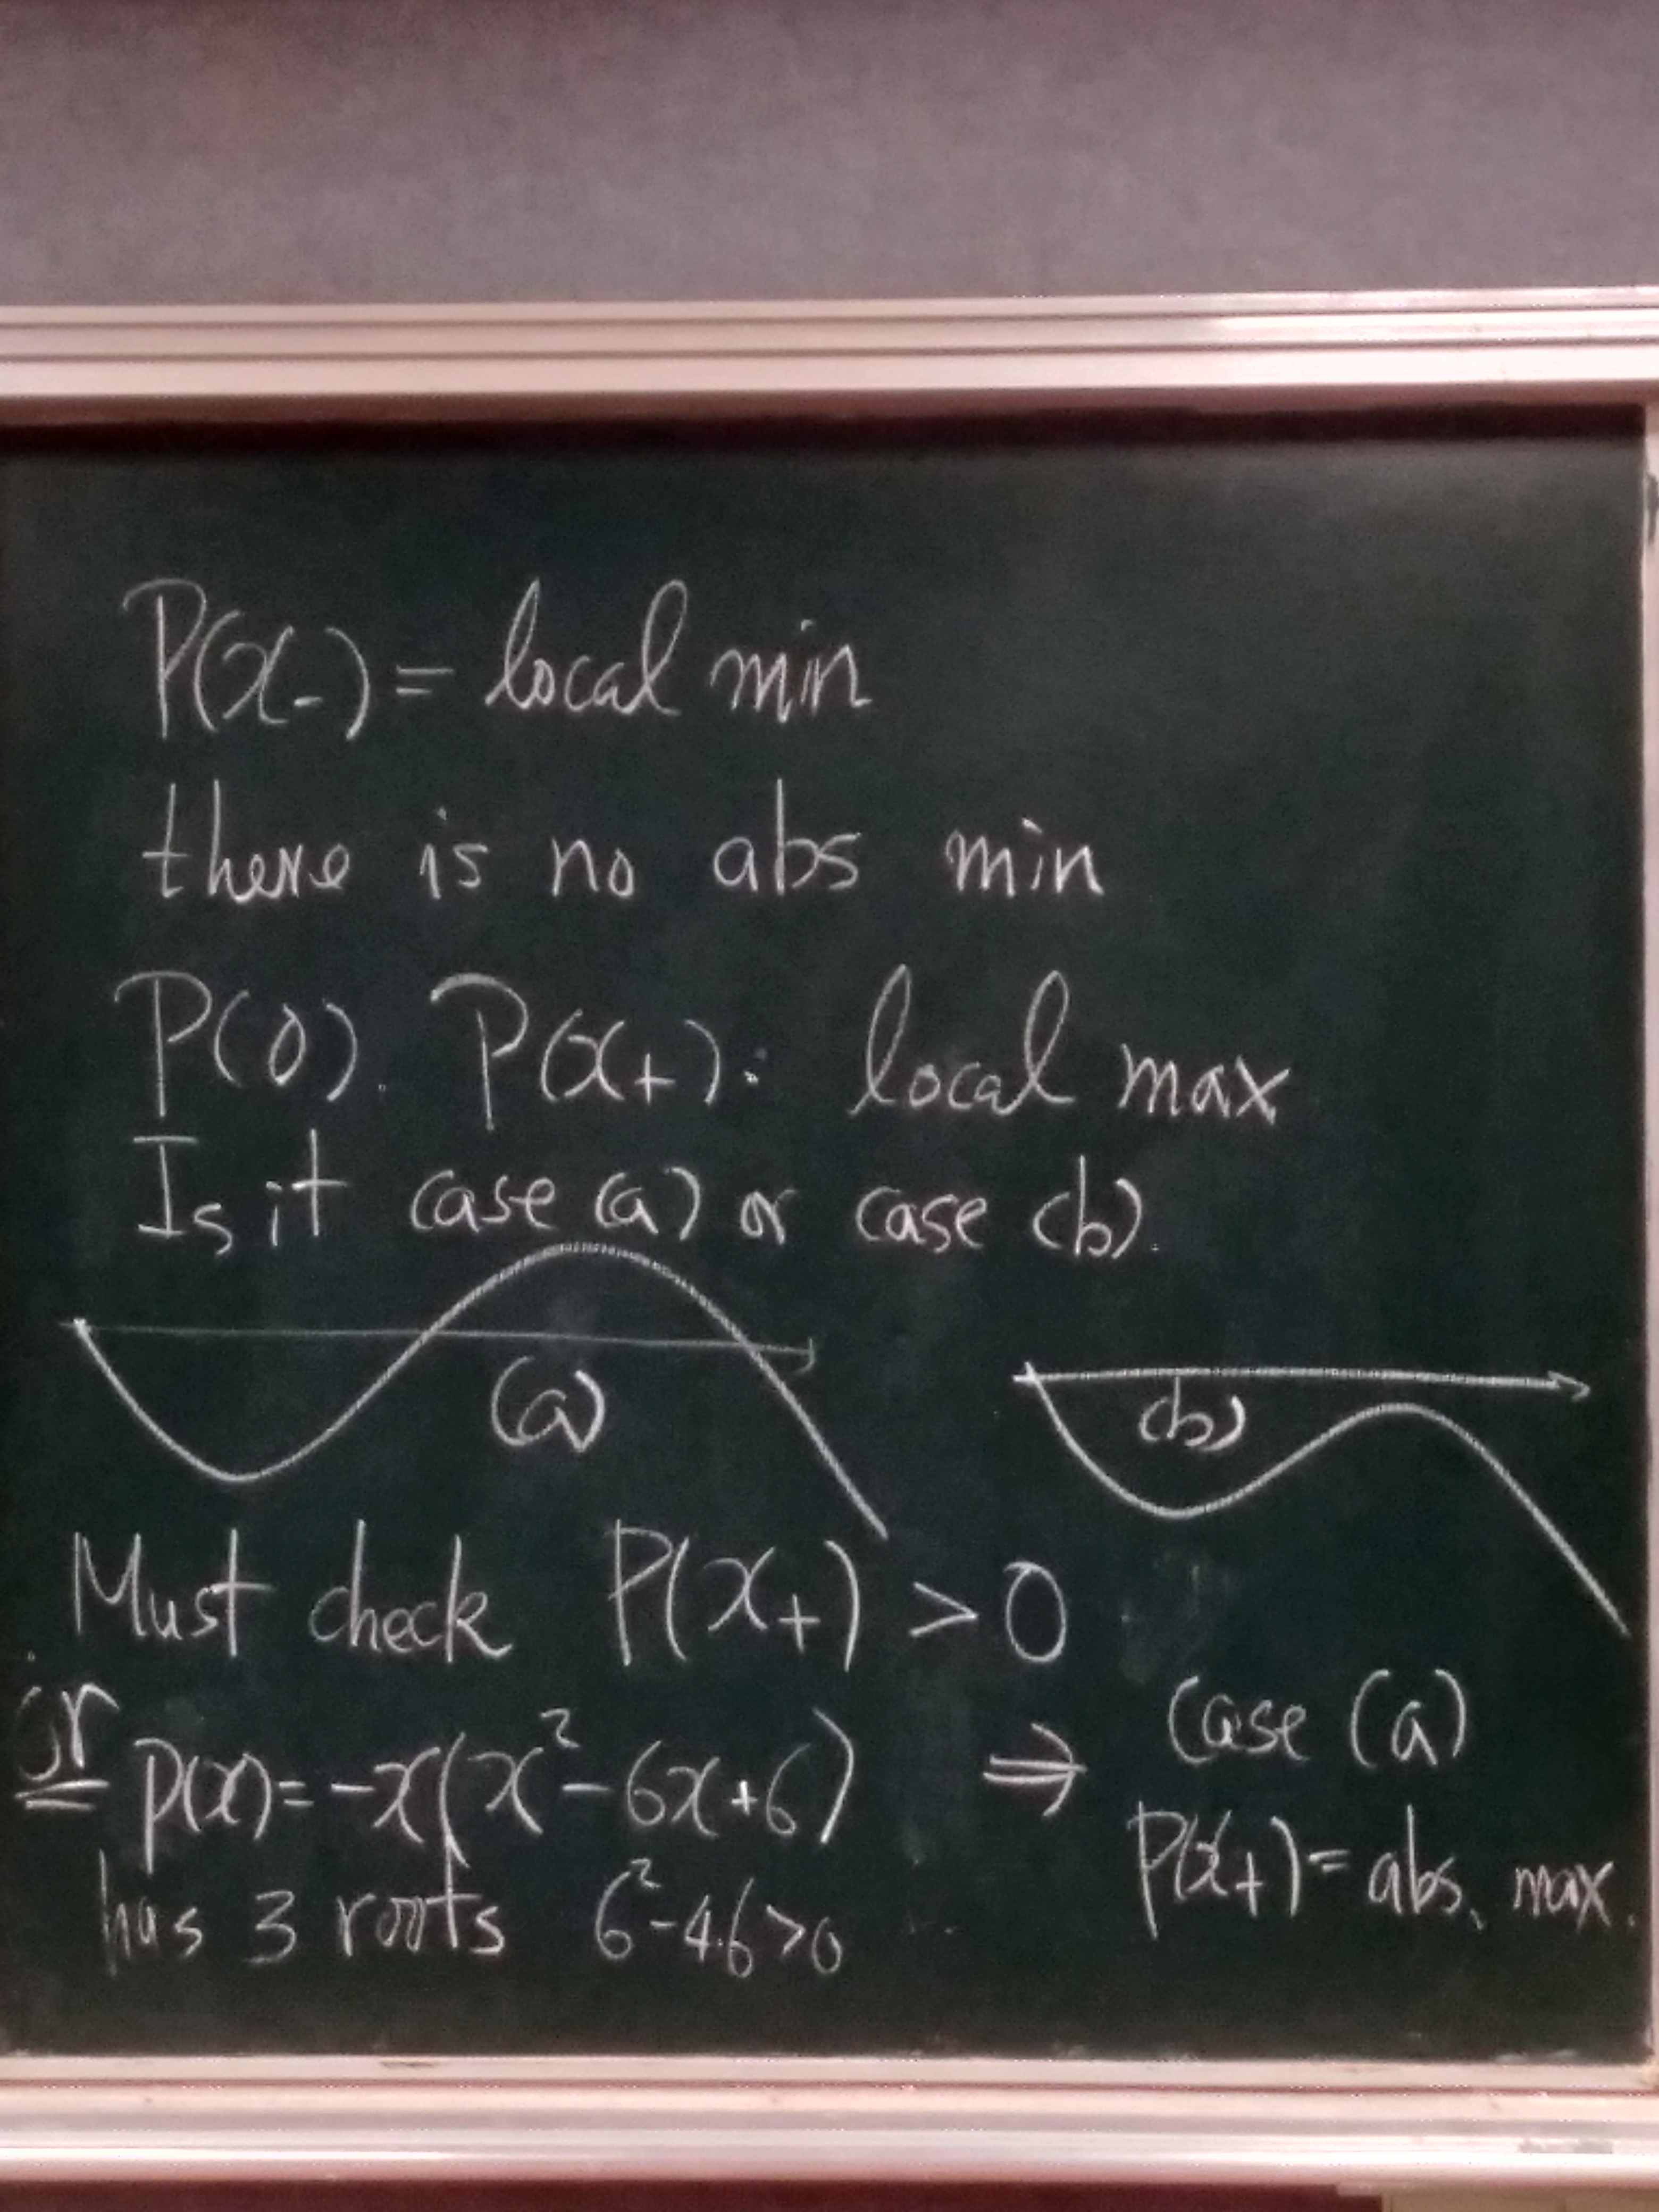 P(x₋) = local min
there is no abs min
P(0). P(x₊): local max
Is it case (a) or case (b).
(a)
(b)
Must check P(x₊) > 0
or P(x) = -x(x² - 6x + 6) ⇒ case (a)
has 3 roots 6² - 4.6 > 0
P(x₊) = abs. max.